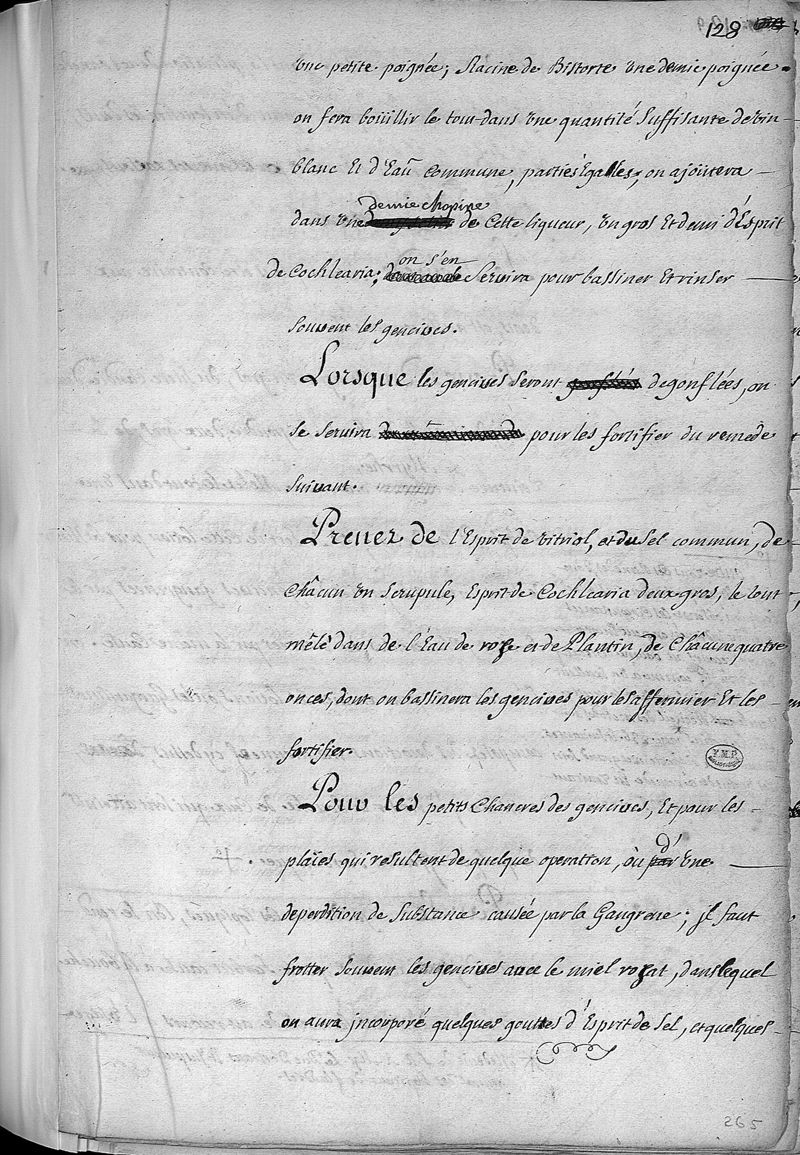 128
une petite poignée; Racine de Bistorte une demie poignée
on fera boüillir le tout dans une quantité Suffisante de vin
blanc Et d'Eaû commune, parties Egalles, on ajoûtera
demie chopine
dans une de Cette liqueur, un gros Et demi d'Esprit
on s'en
de Cochlearia; Servira pour bassiner Et rinser
Souvent les gencives.
Lorsque les gencives Seront degonflées, on
Se Servira pour les fortifier du remede
Suivant.
Prenez de l'Esprit de vitriol, et du Sel commun, de
Châcun un Scrupule, Esprit de Cochlearia deux gros, le tout
mêlé dans de l'Eau de roze et de Plantin, de Châcune quatre
onces, dont on bassinera les gencives pour les affermier Et les
fortifier.
Pour les petits Chancres des gencives, Et pour les
d'
plaïes qui resultent de quelque operation, où par une
deperdition de Substance causée par la Gangrene; jl faut
frotter Souvent les gencives avec le miel rozat, dans lequel
on aura jncorporé quelques gouttes d'Esprit de Sel, et quelques
265